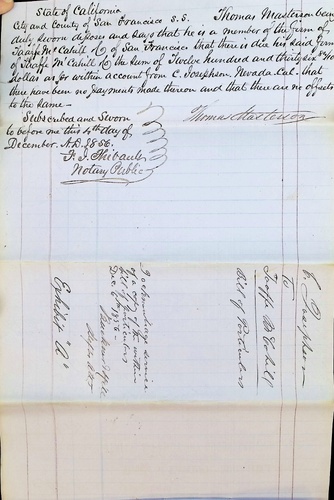 State of California
City and County of San Francisco S.S. Thomas Masterson being
duly sworn deposes and says that he is a member of the firm of
Taaffe McCahill & Co of San Francisco that there is due his said firm
of Taaffe McCahill & Co the sum of Twelve hundred and thirty six
dollars as per within account from C. Josephson. Nevada. Cal. that
there have been no payments made thereon and that there are no offsets
to the same.
Subscribed and Sworn
to before me this 4th day of
December. A.D. 1856.
F. J. Thibault
Notary Public
Thomas Masterson
C Josephson
To
Taaffe McCahill
Bill of Particulars
I acknowledge service
of a copy of the within
bill of particulars
Dec 6th 1856
Exhibit "A"